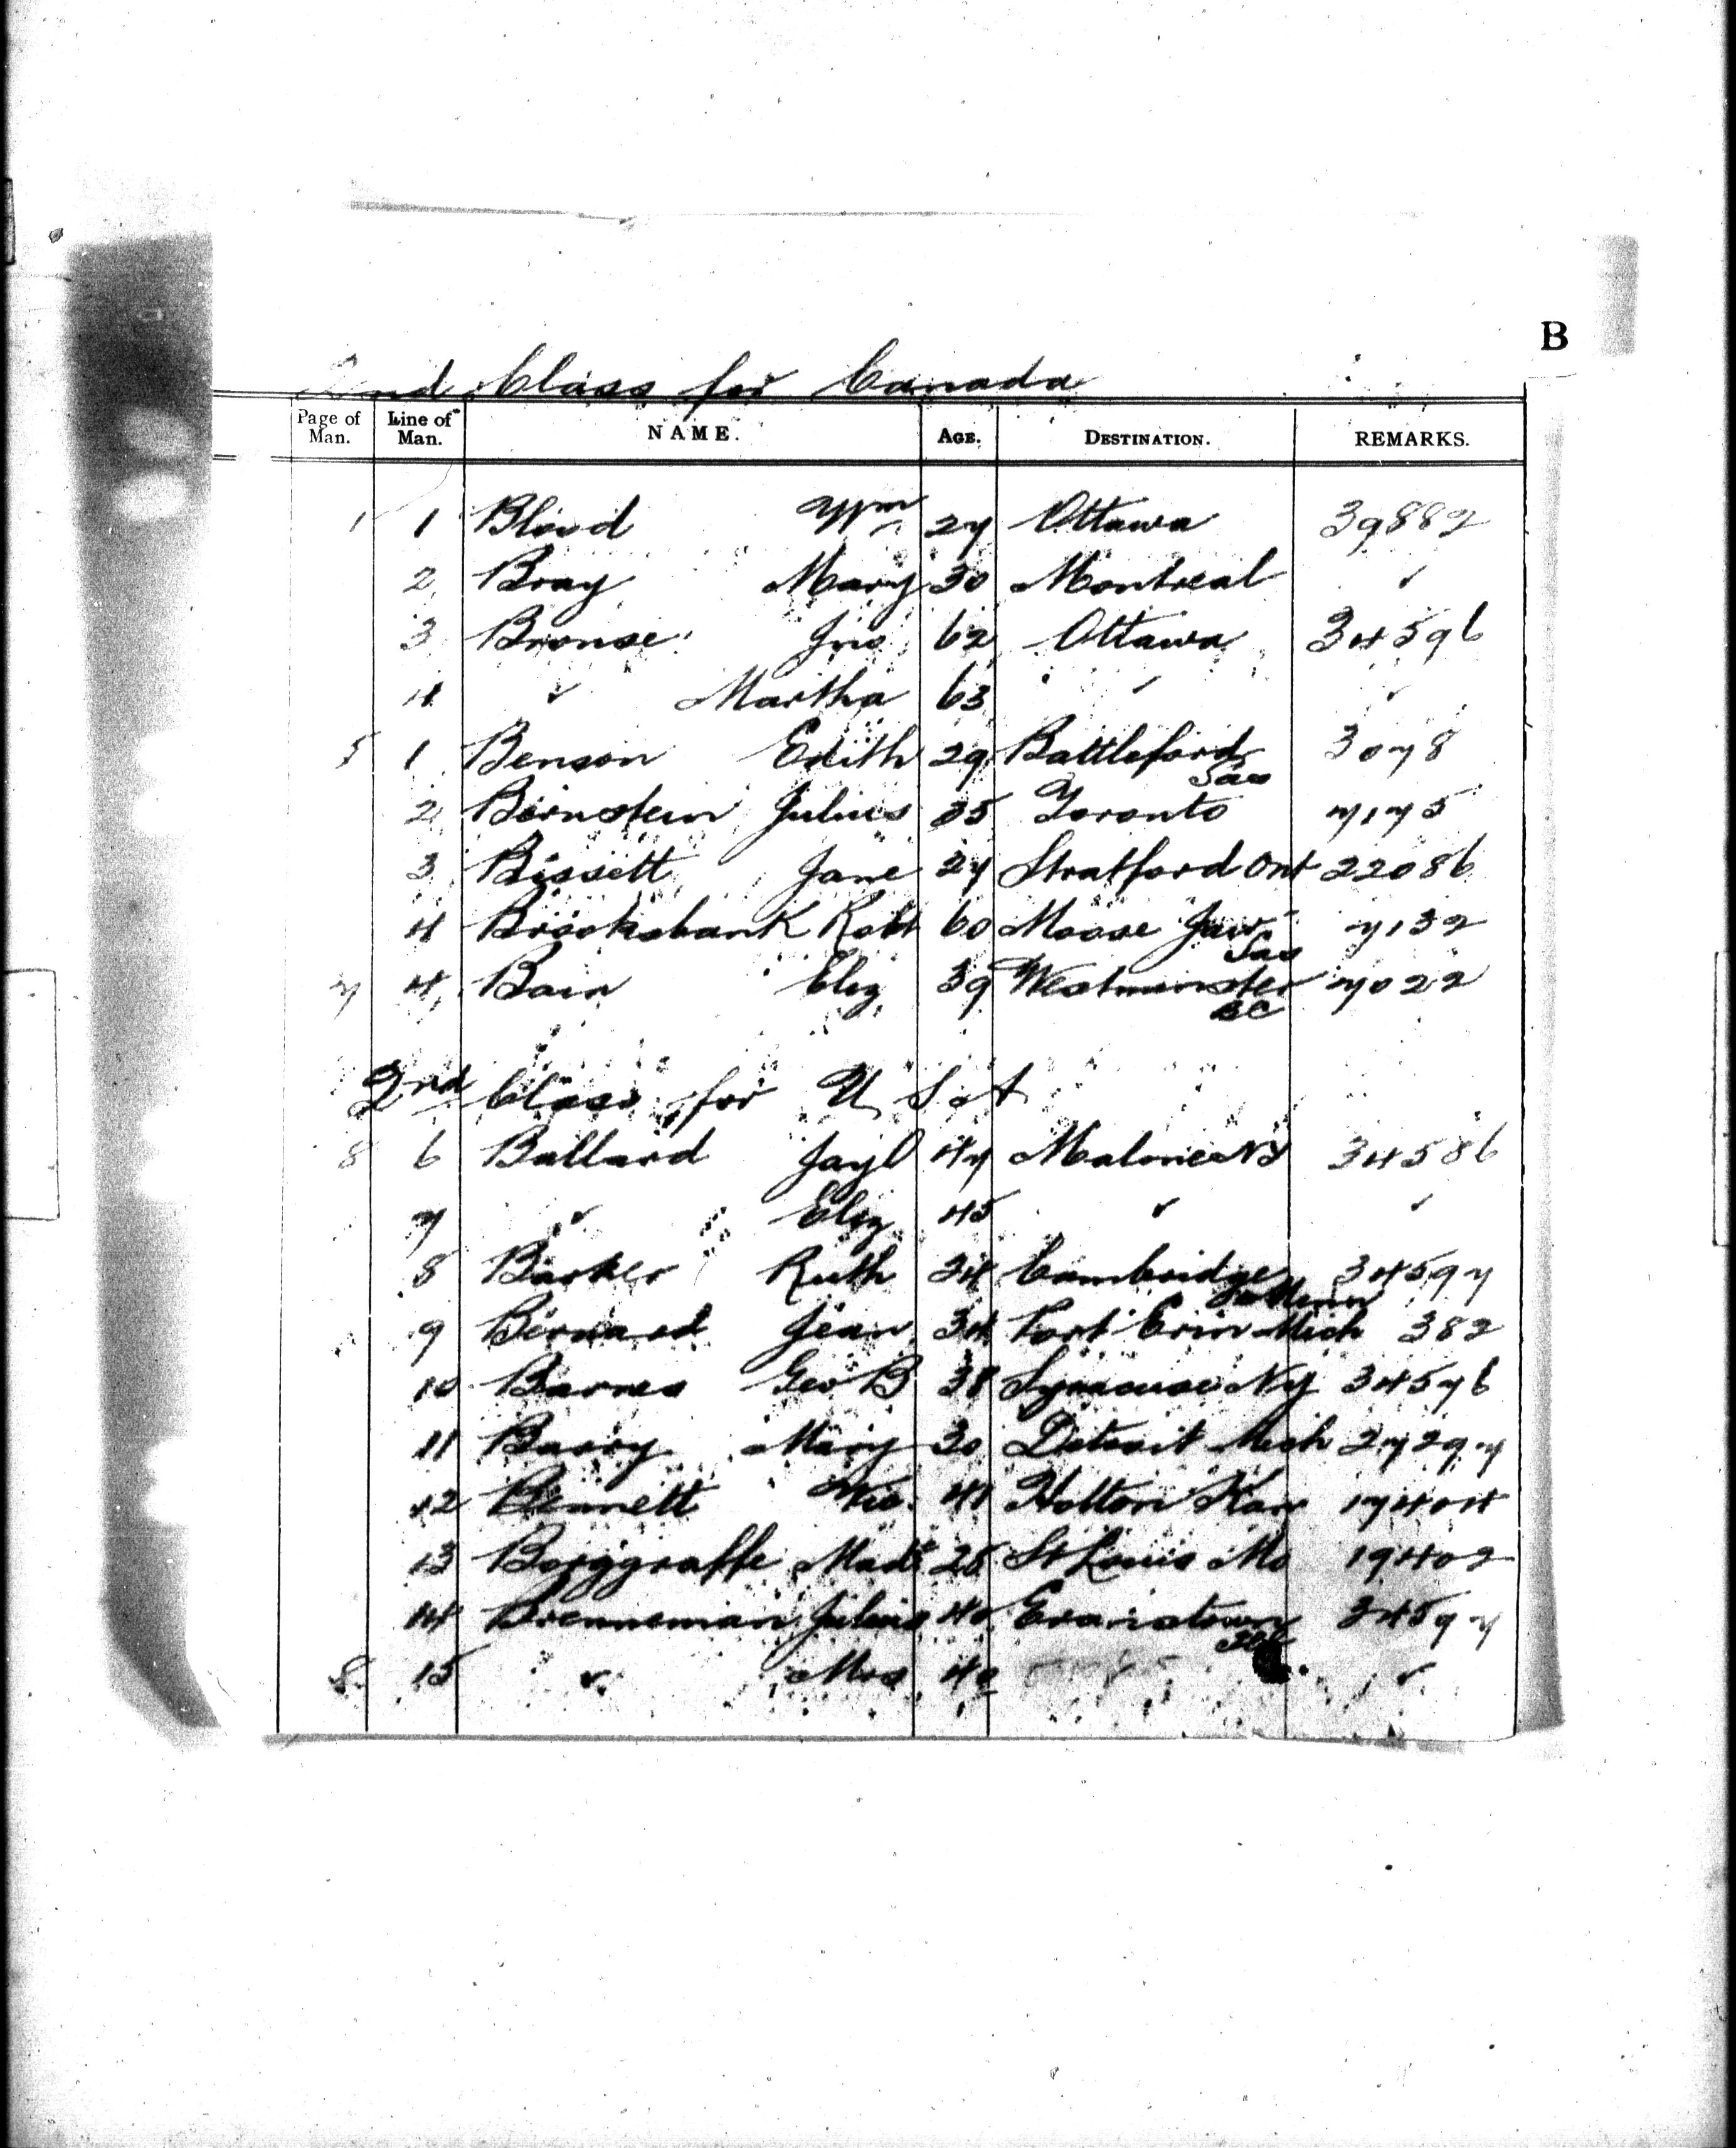 B
2nd Class for Canada
Page of Man. Line of Man. NAME. AGE. DESTINATION. REMARKS.
1 1 Blood Wm 27 Ottawa 39882
2 Bray Mary 30 Montreal "
3 Bronse Jno 62 Ottawa 34596
4 " Martha 63 " "
5 1 Benson Edith 29 Battleford Sas 3078
2 Bernstein Julius 35 Toronto 7175
3 Bissett Jane 27 Stratford Ont 22086
4 Brooksbank Robt 60 Moose Jaw Sas 7132
7 4 Bain Eliz 39 Westminster BC 7022
2nd Class for U S A
8 6 Ballard Jayl 47 Malone NY 34586
7 " Eliz 45 " "
8 Barker Ruth 24 Cambridge 34597
9 Bernard Jean 34 Port Erin Mich 382
10 Barnes Geo B 38 Syracuse NY 34576
11 Barry Mary 30 Detroit Mich 27297
12 Bennett 41 Holton Kan 17404
13 Borggraffe Made 25 St Louis Mo 19402
14 Brenneman Julius 40 Evanstown 34597
8 15 " Mrs 40 "